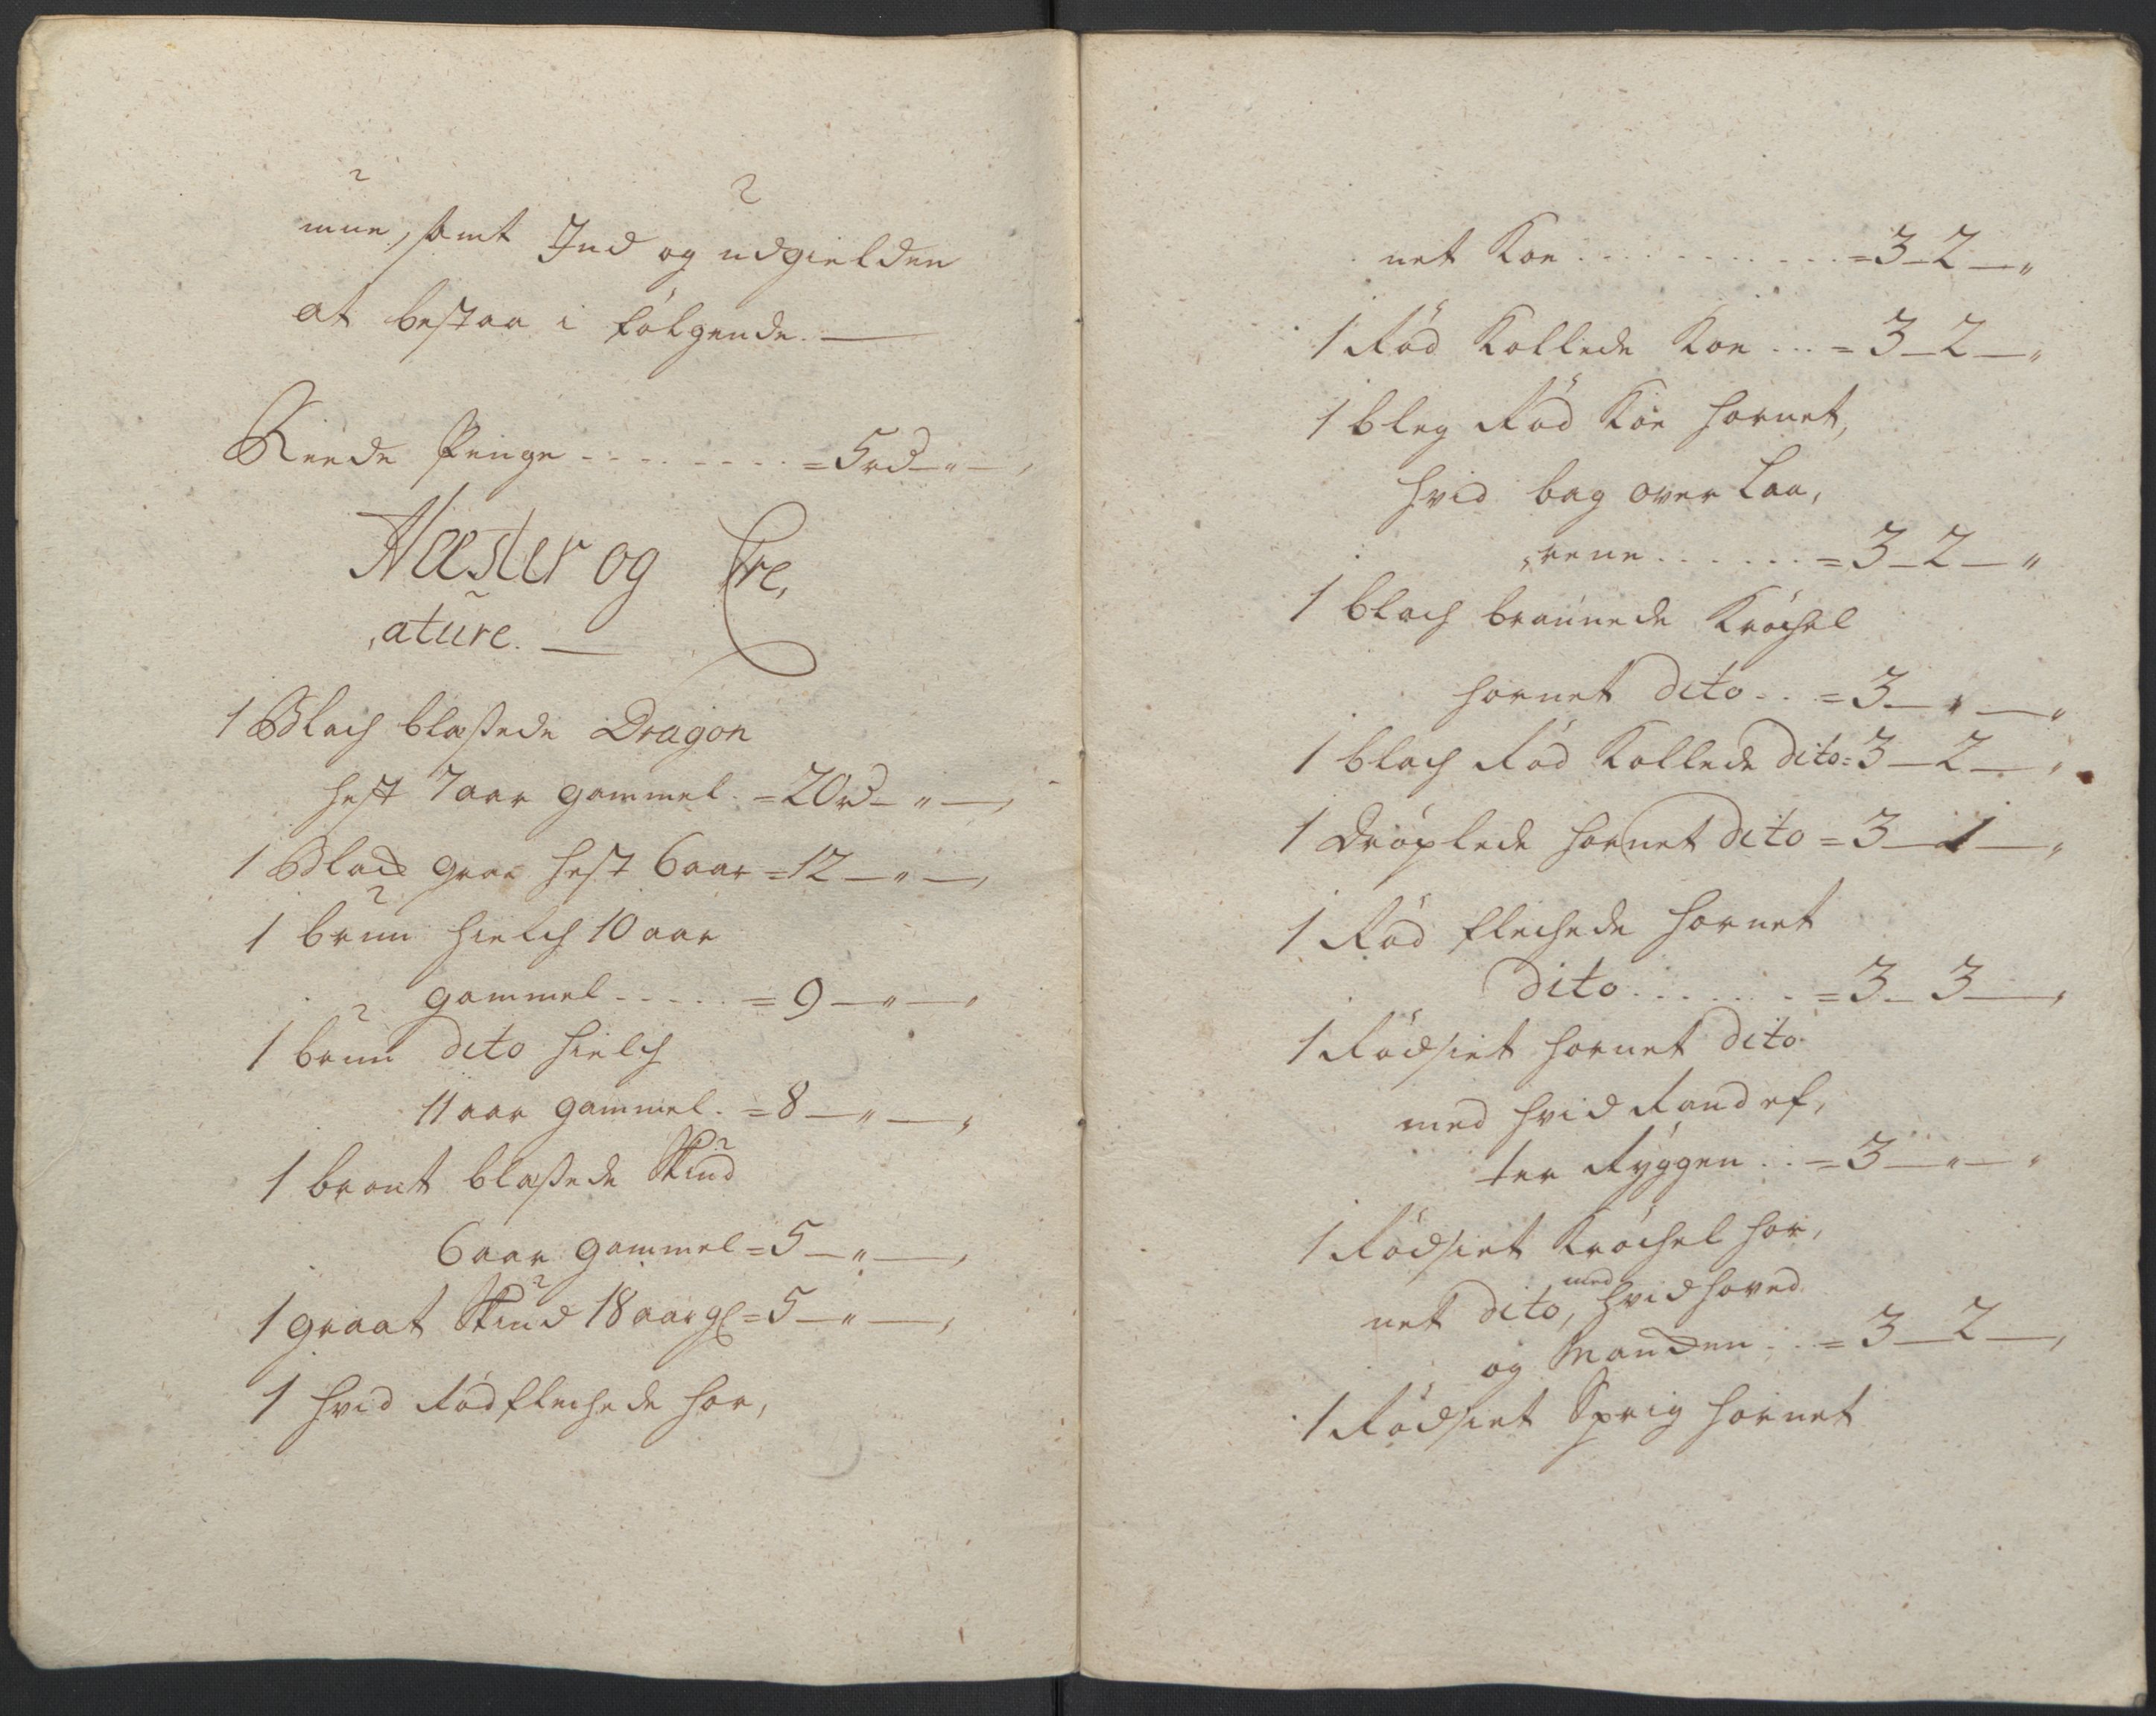 mue, samt Ind og udgielden
at bestaa i følgende. —
Reede Penge - - - - - - - - = 5 rd — " — ,
Hæster og Cre,
,ature. —
1 Blach blessede Dragon
hest 7 aar gammel. = 20 rd — " — ,
1 Blach graa hest 6 aar = 12 — " — ,
1 brun hielch 10 aar
gammel - - - - - = 9 — " — "
1 brun dito hielch
11 aar gammel. = 8 — " — ,
1 brunt blessede Stud
6 aar gammel = 5 — " — ,
1 graat Stud 18 aar gl = 5 — " — ,
1 hvid Rødflechede hor,
net Koe . . . . . . . . . . = 3 — 2 — "
1 Rød Kollede Koe . . . = 3 — 2 — "
1 bleg Rød Koe hornet,
hvid bag over Laa,
,rene . . . . . . = 3 — 2 — "
1 blach brannede Krøchel
hornet dito . . = 3 — " — "
1 blach Rød Kollede dito = 3 — 2 — "
1 drøplede hornet dito = 3 — 1 — ,
1 Rød flechede hornet
dito . . . . . . . = 3 — 3 — ,
1 Rødsiet hornet dito
med hvid Rand ef,
ter Ryggen . . = 3 — " — "
1 Rødsiet Krøchel hor,
net dito, med hvid hoved
og Manden . . = 3 — 2 — ,
1 Rødsiet Sprig hornet